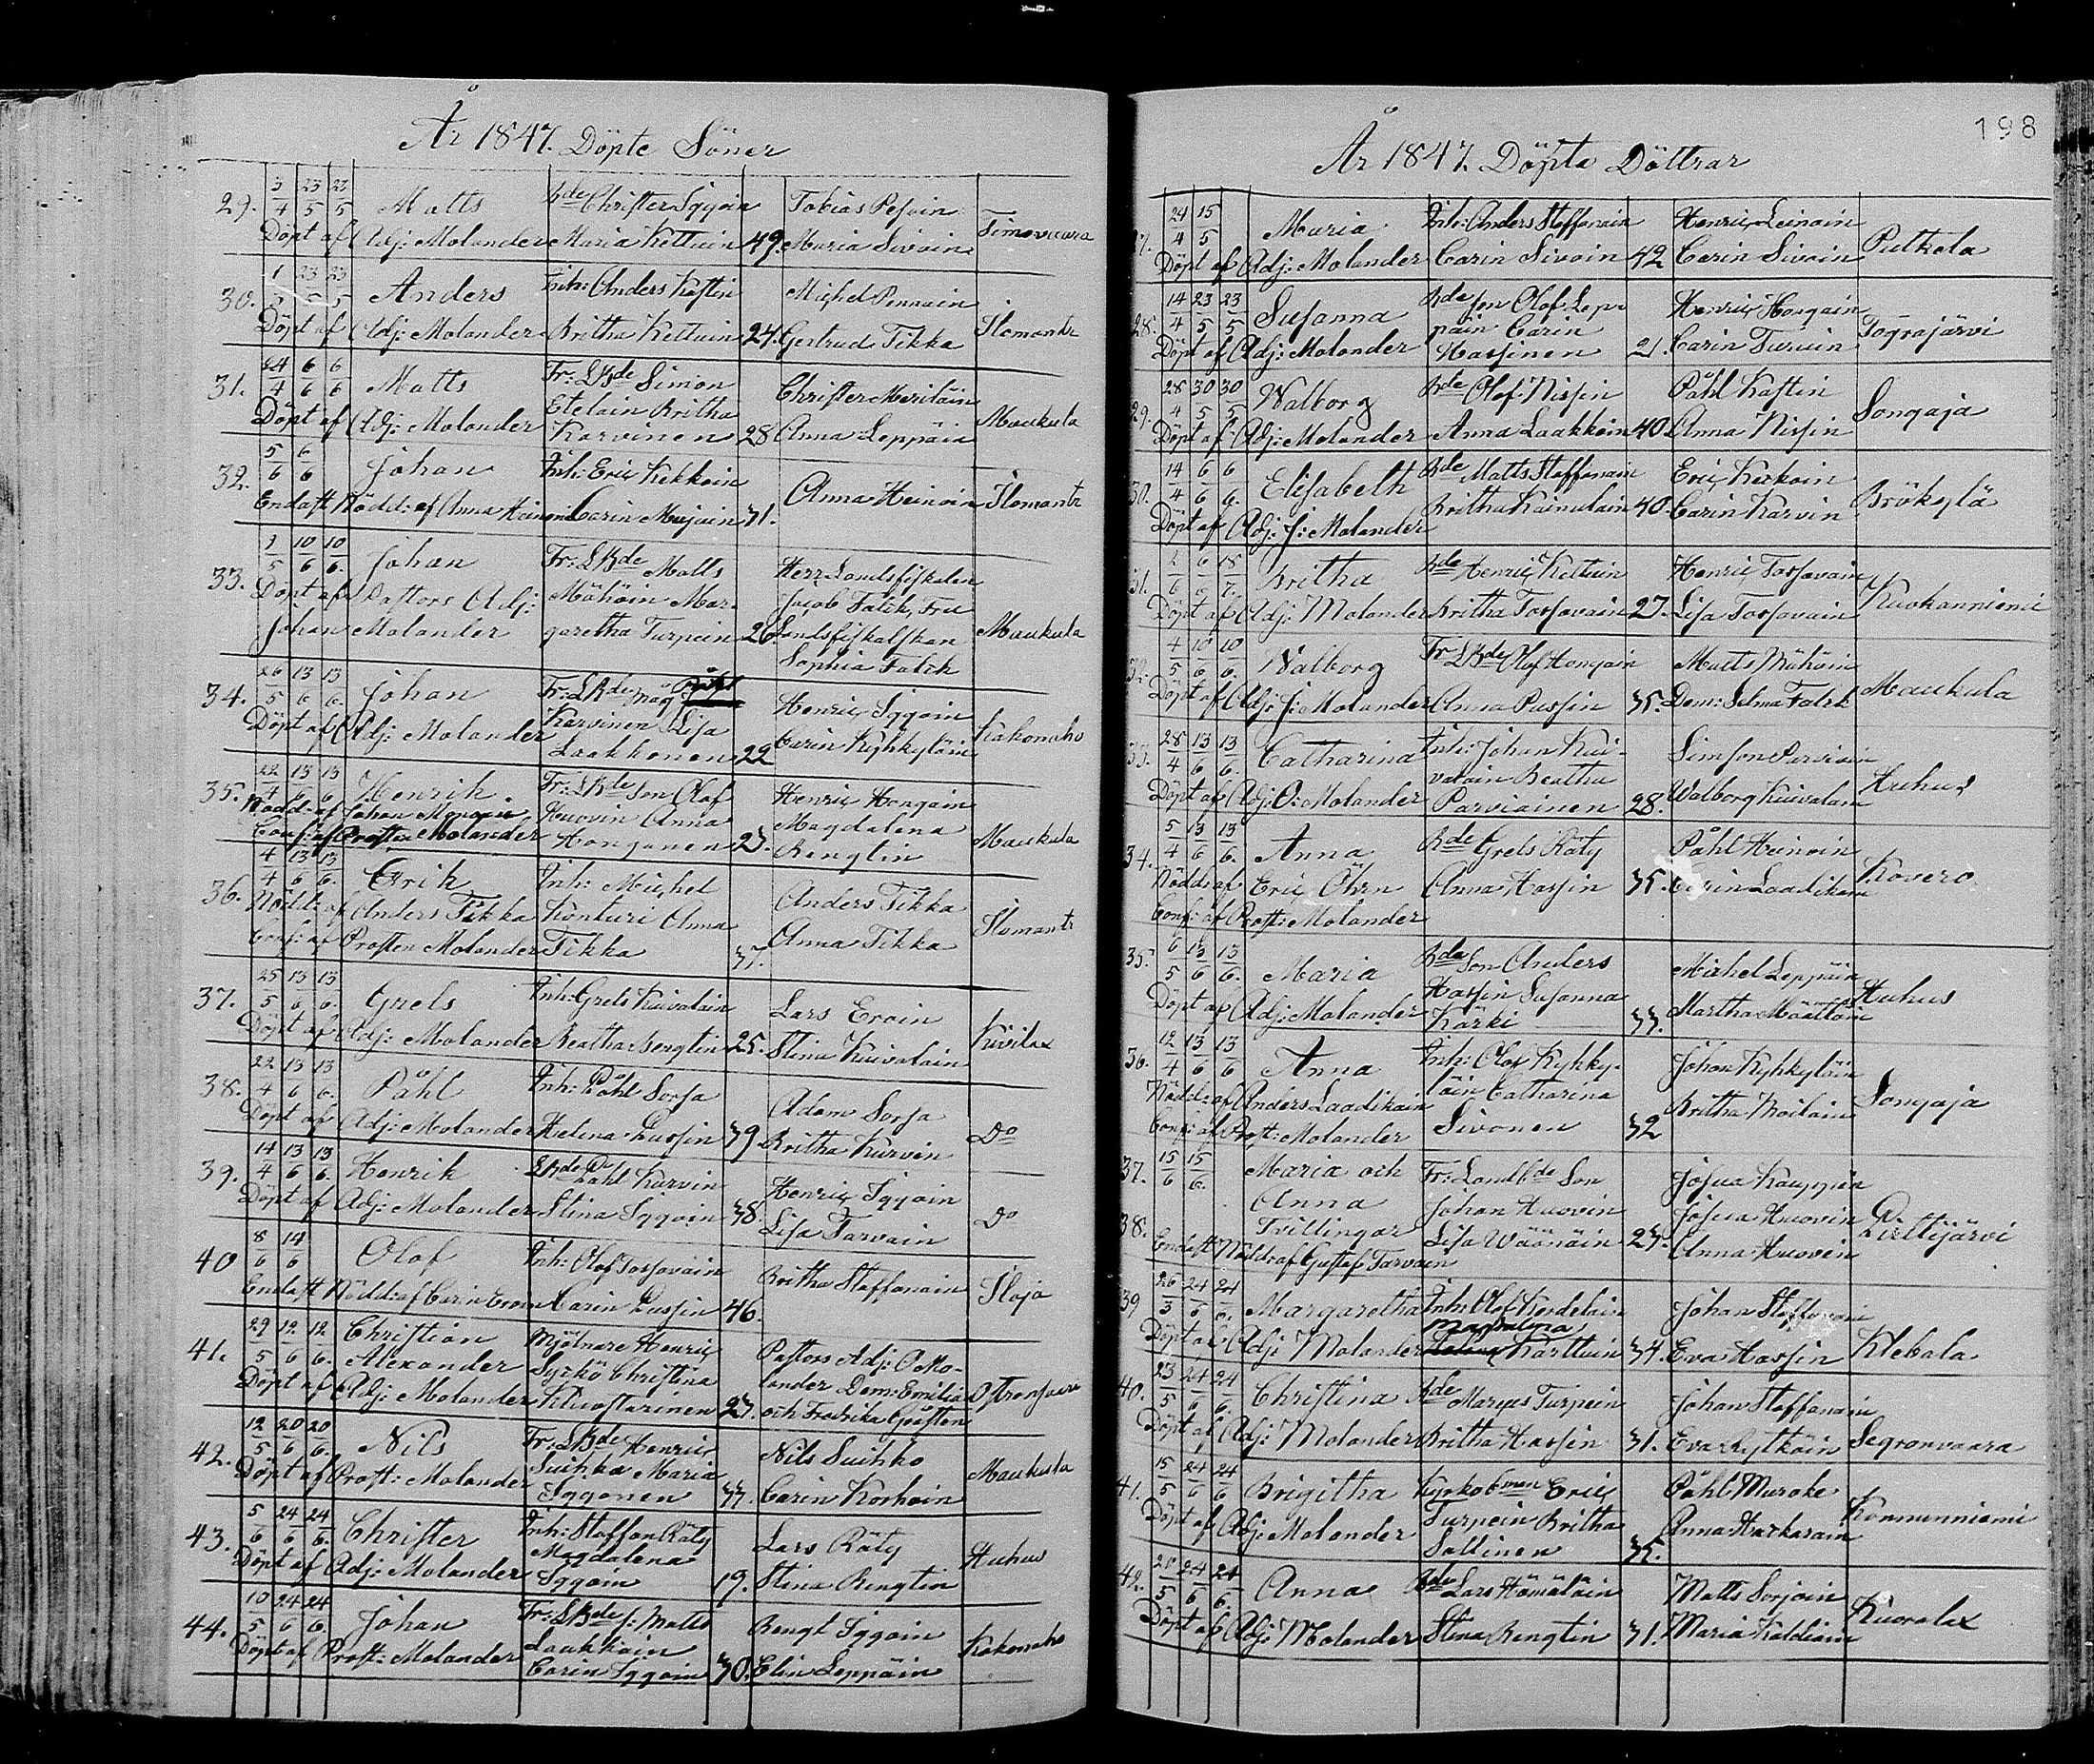 År 1847. Döpte Söner
29. 3/4 23/5 23/5 Matts Bde Christer Iggoin Tobias Pesoin
Döpt af Adj: Molander Maria Kettuin 49. Maria Sivoin Timovaara
30. 1/5 23/5 23/5 Anders Inh: Anders Kastin Michel Pennain
Döpt af Adj: Molander Britha Kettuin 24. Gertrud Tikka Ilomants
31. 24/4 6/6 6/6 Matts Fr: LBde Simon Christer Meriläin
Döpt af Adj: Molander Etelain Britha Maukula
Karvinen 28 Anna Leppäin
32. 5/6 6/6 Johan Inh: Eric Kekkoin
Anna Heinoin Ilomants
Endast Nödd: af Anna Heinoin Carin Mujuin 31.
33. 1/5 10/6 10/6. Johan Fr: LBde Matts Herr Landsfiskalen
Döpt af Pastors Adj: Mähöin Mar- Jacob Falck, Fru
Johan Molander garetha Turpein 26 Landsfiskalskan Maukula
Sophia Falck
34. 26/5 13/6 13/6. Johan Fr: LBde Måg Påhl Henric Iggoin
Döpt af Adj: Molander Karvinen Lisa Carin Kyhkyläin Kakonaho
Laakkonen 22
35. 22/4 13/6 13/6 Henrik Fr: LBde Son Olof Henric Hongain
Nödd: af Johan Huovin Anna Magdalena
Conf: af Prosten Molander Honganen 23. Bengtin Maukula
36. 4/4 13/6 13/6. Erik Inh: Michel Anders Tikka
Nödd: af Anders Tikka Konturi Anna Ilomants
Conf: af Prosten Molander Tikka 37. Anna Tikka
37. 25/5 13/6 13/6. Grels Inh: Grels Kuivalain Lars Eroin
Döpt af Adj: Molander Beatha Bengtin 25. Stina Kuivalain Kivilax
38. 22/4 13/6 13/6. Påhl Inh: Påhl Sorsa Adam Sorsa
Döpt af Adj: Molander Helena Pussin 39. Britha Kurvin Do
39. 14/4 13/6 13/6. Henrik LBde Påhl Kurvin Henric Iggoin
Döpt af Adj: Molander Stina Iggoin 38 Lisa Tarvain Do
40 8/6 14/6 Olof Inh: Olof Torsovain Britha Staffanain Iloja
Endast Nödd: af Carin Eroin Carin Pussin 46.
41. 29/5 12/6 12/6. Christian Mjölnare Henric Pastors Adj: O Mo-
Alexander Syrkö Christina lander Dem: Emilia
Döpt af Adj: Molander Kluostarinen 27. och Fredrika Gösten
42. 12/5 20/6 20/6. Nils Fr: LBde Henric Nils Suihko
Döpt af Prost: Molander Suihka Maria Maukula
Iggonen 33. Carin Korhoin
43. 5/6 24/6 24/6. Christer Inh: Staffan Räty Lars Räty
Döpt af Adj: Molander Magdalena Huhus
Iggoin 19. Stina Bengtin
44. 10/5 24/6 24/6. Johan Fr: LBde s: Matts Bengt Iggoin
Döpt af Prost: Molander Laakkoin Kakonaho
Carin Iggoin 30. Elin Leppäin
198
År 1847. Döpta Döttrar
24/4 15/5 Maria Inh: Anders Staffanain Henric Leinoin
Döpt af Adj: Molander Carin Sivoin 42 Carin Sivoin Putkela
28. 14/4 23/5 23/5 Susanna Bde son Olof Lep- Henric Hongain
päin Carin
Döpt af Adj: Molander Hassinen 21. Carin Turuin
29. 28/4 30/5 30/5 Walborg Bde Olof Nissin Påhl Kastin
Döpt af Adj: Molander Anna Laakkoin 40. Anna Nissin Songaja
30. 14/4 6/6 6/6. Elisabeth Bde Matts Staffanain Eric Keckoin
Britha Kainulain 40. Carin Karvin
Döpt af Adj: J: Molander
31. 6/6 18/7. Britha Bde Henric Kettuin Henric Torsovain
Döpt af Adj: Molander Britha Torsovain 27. Lisa Torsovain Kuokanniemi
32. 4/5 10/6 10/6. Walborg Fr LBde Olof Hongain Matts Mähöin
Döpt af Adj: J: Molander Anna Pussin 35. Dem: Selma Falck Maukula
33. 28/4 13/6 13/6. Catharina Inh: Johan Kui- Simson Parviain
valain Beatha Huhus
Döpt af Adj: O: Molander Parviainen 28. Walborg Kuivalain
34. 5/4 13/6 13/6. Anna Bde Grels Räty Påhl Heinoin
Nödd: af Eric Öhrn Anna Hassin 35. Carin Laadikain Kovero
Conf: af Prost: Molander
35. 6/5 13/6 13/6. Maria Bde Son Anders Michel Leppäin
Hassin Susanna Huhus
Döpt af Adj: Molander Kärki 33. Martha Määttäin
36. 12/4 13/6 13/6 Anna Inh: Olof Kyhky- Johan Kyhkyläin
Nödd: af Anders Laadikain läin Catharina Songaja
Conf: af Prost: Molander Sivonen 32
37. 15/6 15/6. Maria och Fr: Landbde Son Josua Kauppin
Anna Johan Huovin Josua Huovin
38. Tvillingar Lisa Wäänäin 23. Anna Huovin
Endast Nödd: af Gustaf Tarvain
39 26/3 24/6 24/6. Margaretha Inh: Olof Johan Staffanain
Magdalena
Döpt af Adj: Molander Karttuin 34. Eva Hassin Klebala
40. 23/5 24/6 24/6. Christina Bde Marcus Turpein Johan Staffanain
Döpt af Adj: Molander Britha Hassin 31. Eva Rytköin Segronvaara
41. 15/5 24/6 24/6 Brigitha Kyrkobman Eric Påhl Muroke
Döpt af Adj: Molander Turpein Britha Anna Harkarain Konnunniemi
Sallinen 35.
42. 20/5 24/6 24/6. Anna Bde Lars Hämäläin Matts Sorjoin
Döpt af Adj: Molander Stina Bengtin 31. Maria Kaldiain Kuoralax